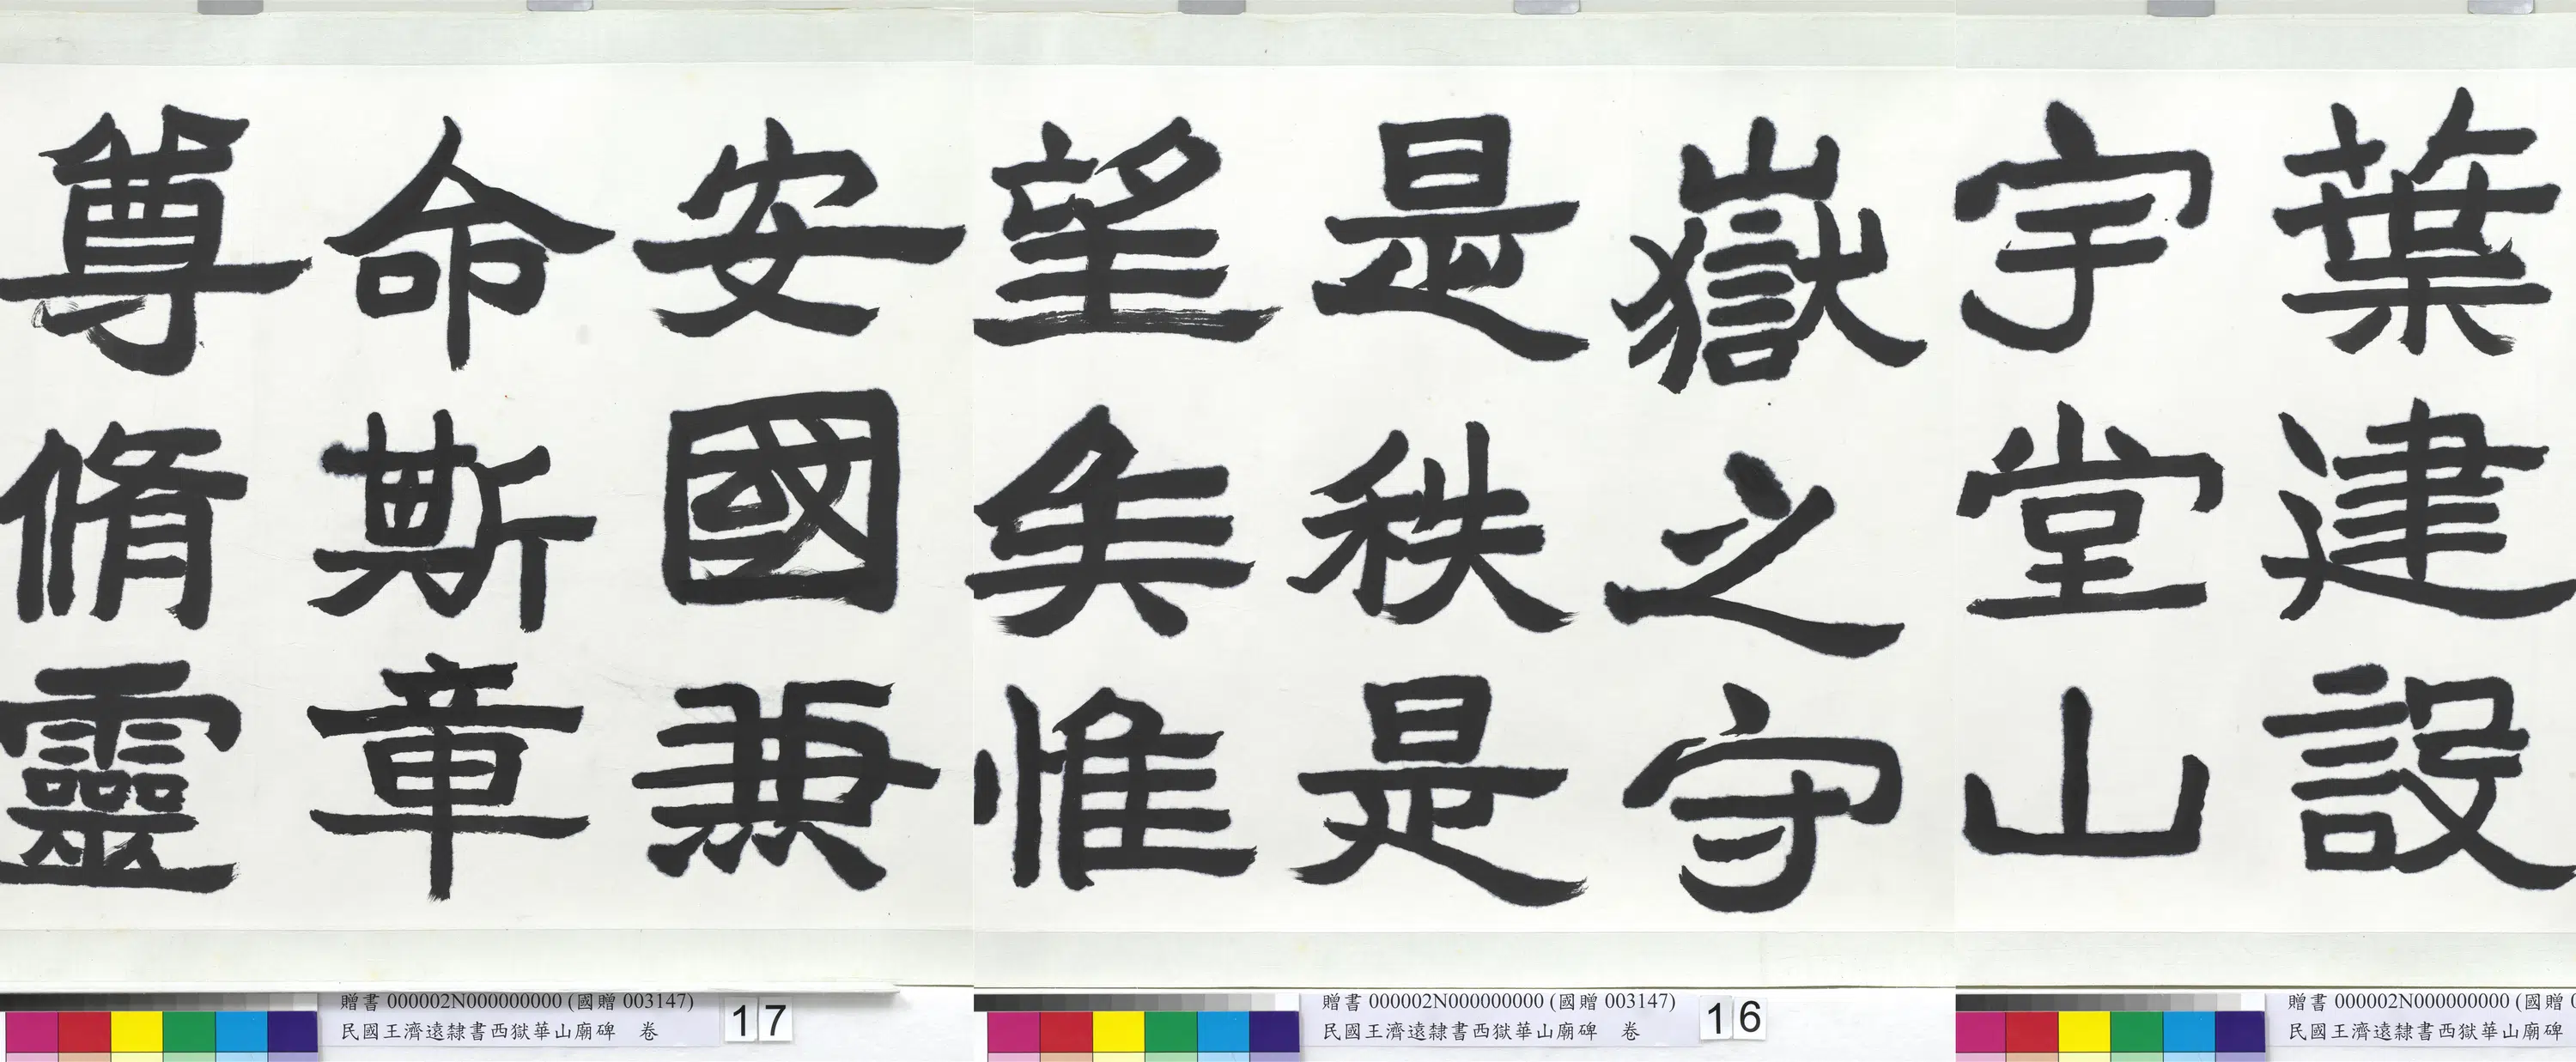 葉建設
宇堂山
嶽之守
是秩是
望矣惟
安國兼
命斯章
尊脩靈
贈書 000002N000000000 (國贈 0
民國王濟遠隸書西獄華山廟碑
贈書 000002N000000000 (國贈 003147)
民國王濟遠隸書西獄華山廟碑 卷
16
贈書 000002N000000000 (國贈 003147)
民國王濟遠隸書西獄華山廟碑 卷
17